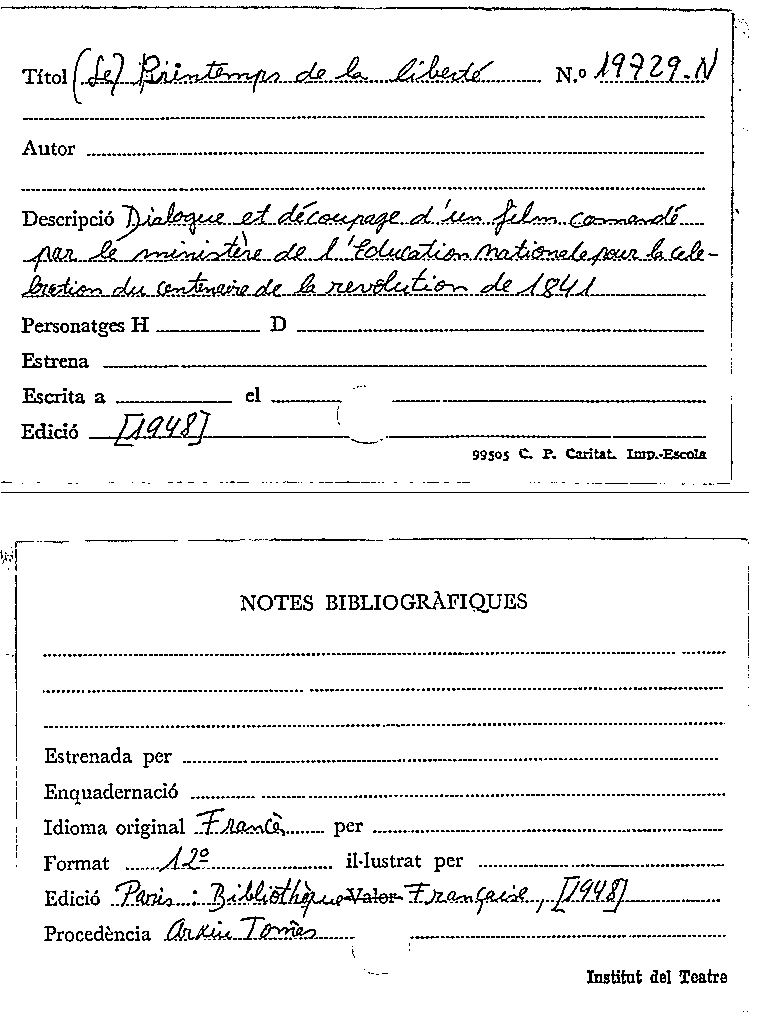 Títol (Le) Printemps de la liberté N.º 19729-N
Autor
Descripció Dialogue et découpage d'un film comandé
par le ministère de l'Education Nationale pour la cele-
bration du centenaire de la revolution de 1841
Personatges H D
Estrena
Escrita a el
Edició [1948]
99505 C. P. Caritat. Imp.-Escola
NOTES BIBLIOGRÀFIQUES
Estrenada per
Enquadernació
Idioma original Francès per
Format 12º il·lustrat per
Edició Paris : Bibliothèque Valor Française, [1948]
Procedència Arxiu Tomàs
Institut del Teatre